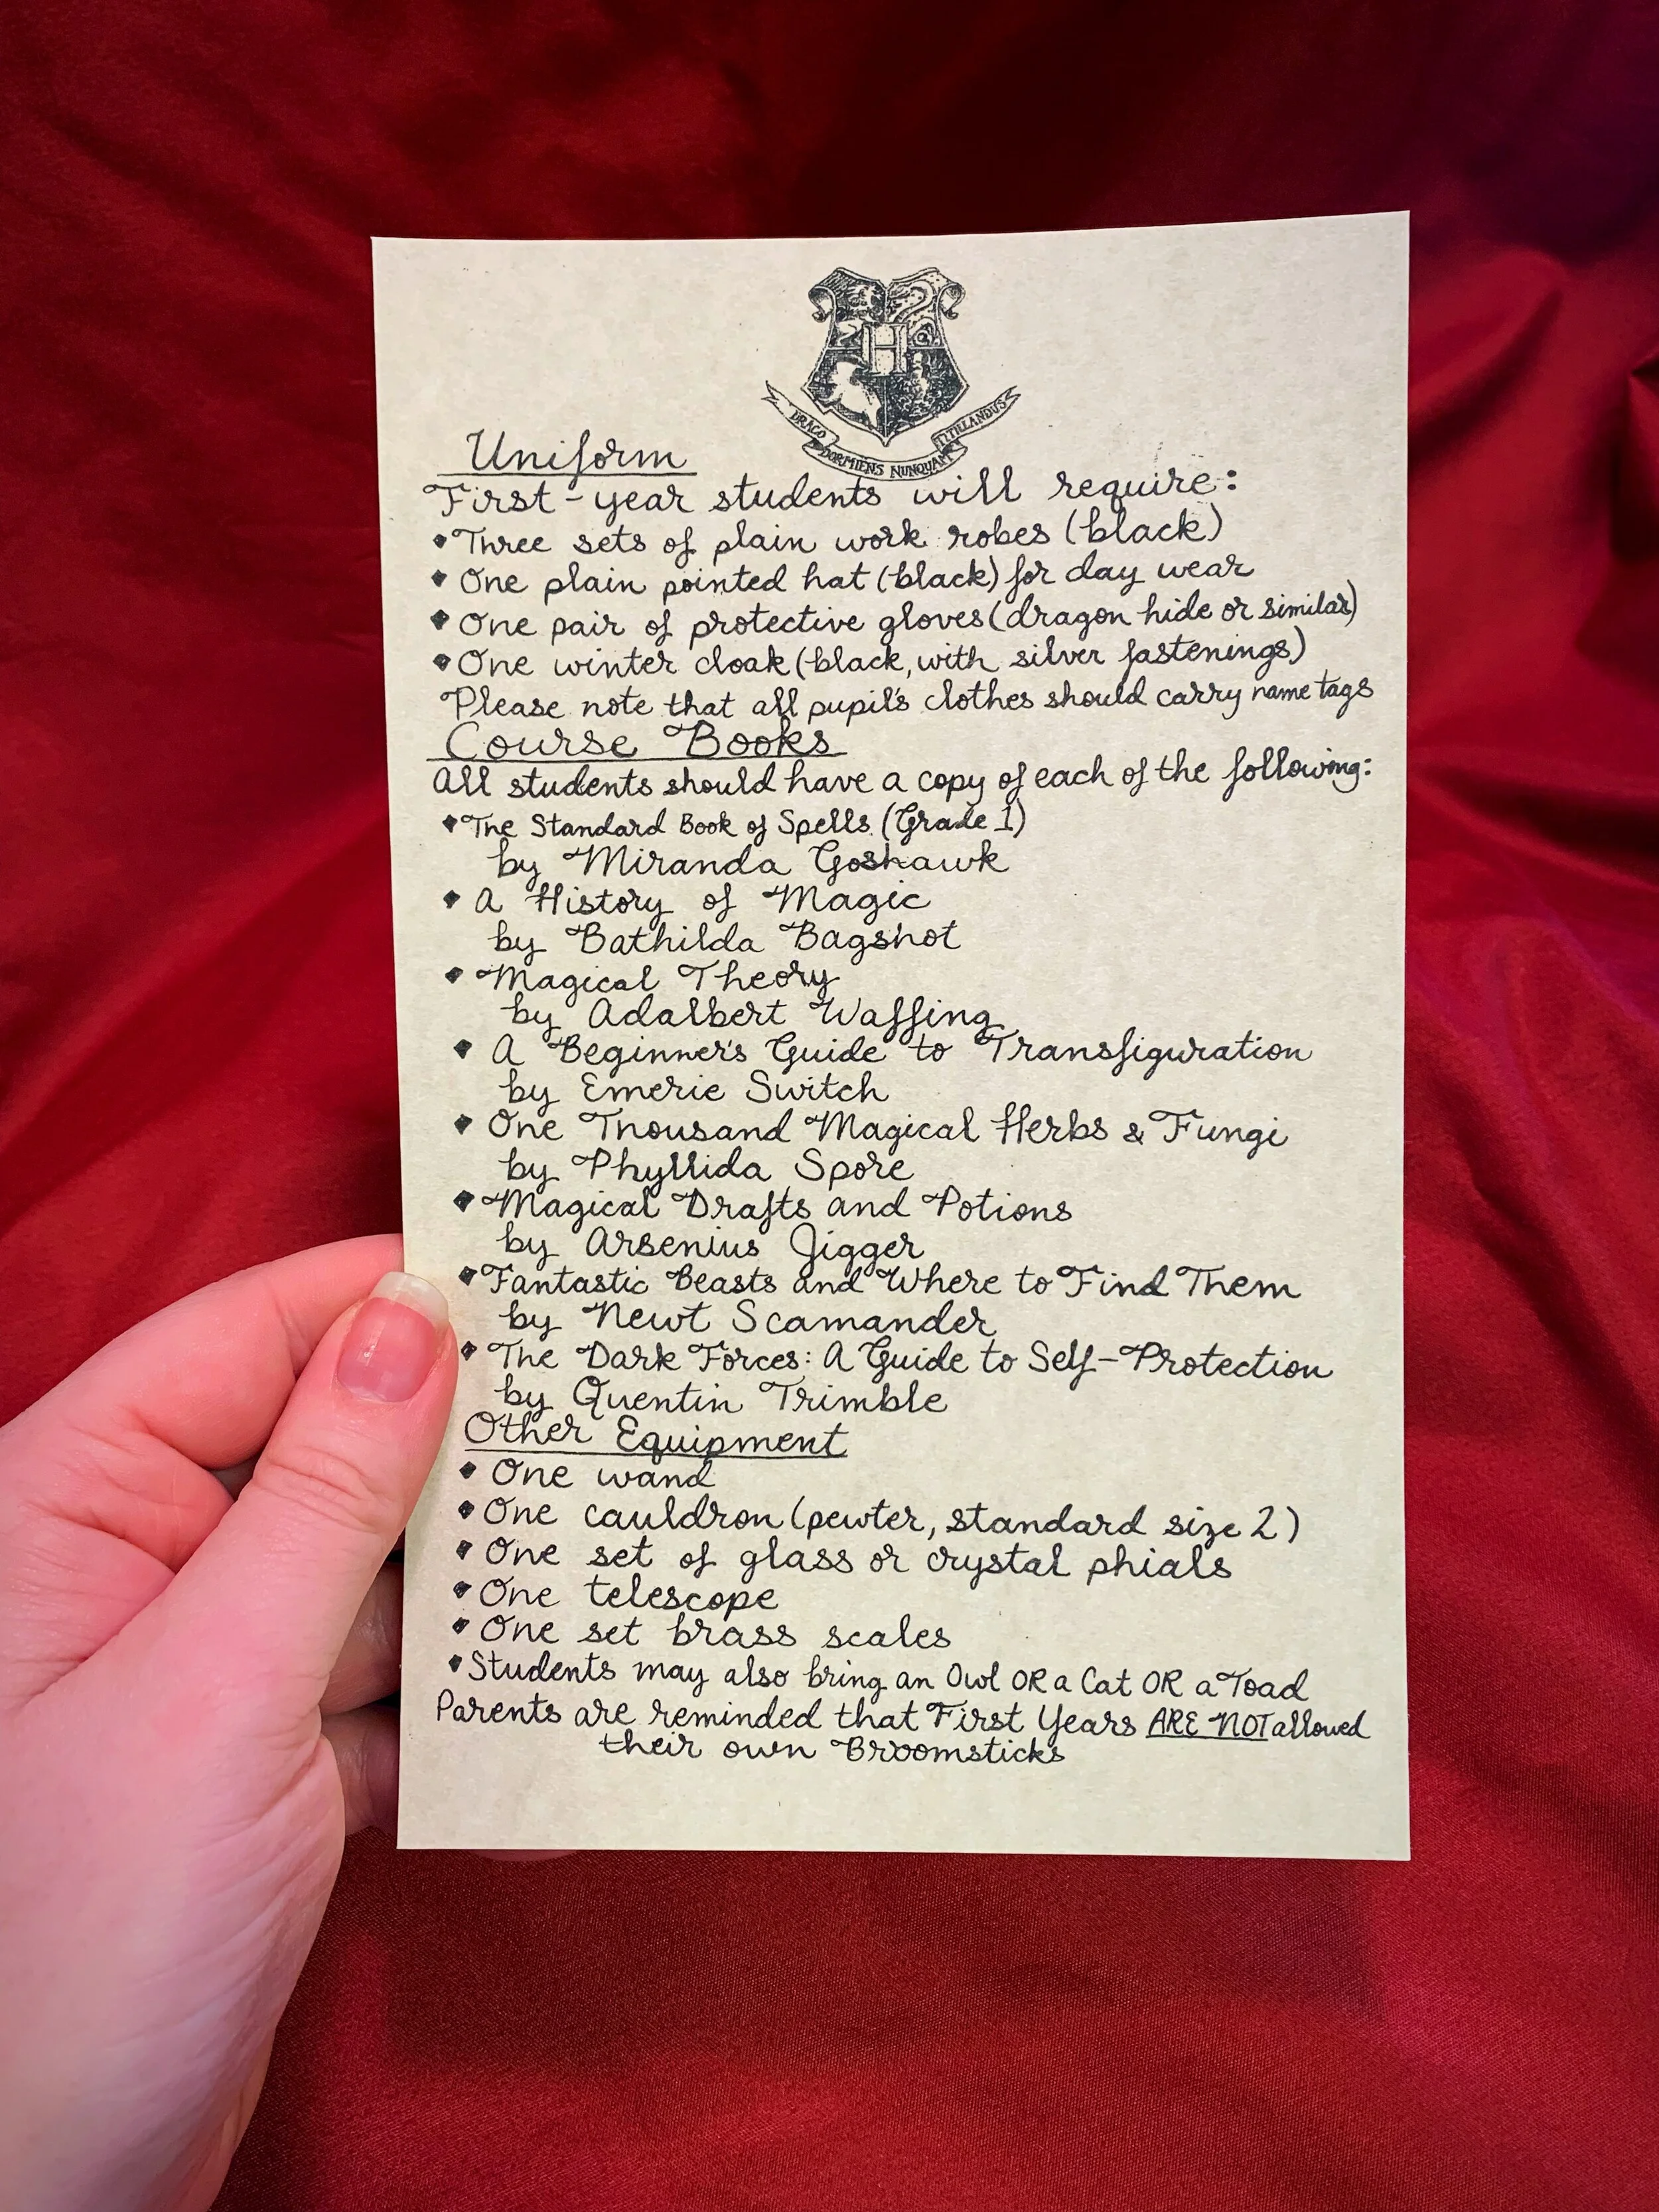 H
DRACO DORMIENS NUNQUAM TITILLANDUS
Uniform
First-year students will require:
• Three sets of plain work robes (black)
• One plain pointed hat (black) for day wear
• One pair of protective gloves (dragon hide or similar)
• One winter cloak (black, with silver fastenings)
Please note that all pupil's clothes should carry name tags
Course Books
All students should have a copy of each of the following:
• The Standard Book of Spells (Grade 1)
by Miranda Goshawk
• A History of Magic
by Bathilda Bagshot
• Magical Theory
by Adalbert Waffing
• A Beginner's Guide to Transfiguration
by Emeric Switch
• One Thousand Magical Herbs & Fungi
by Phyllida Spore
• Magical Drafts and Potions
by Arsenius Jigger
• Fantastic Beasts and Where to Find Them
by Newt Scamander
• The Dark Forces: A Guide to Self-Protection
by Quentin Trimble
Other Equipment
• One wand
• One cauldron (pewter, standard size 2)
• One set of glass or crystal phials
• One telescope
• One set brass scales
• Students may also bring an Owl OR a Cat OR a Toad
Parents are reminded that First Years ARE NOT allowed
their own Broomsticks